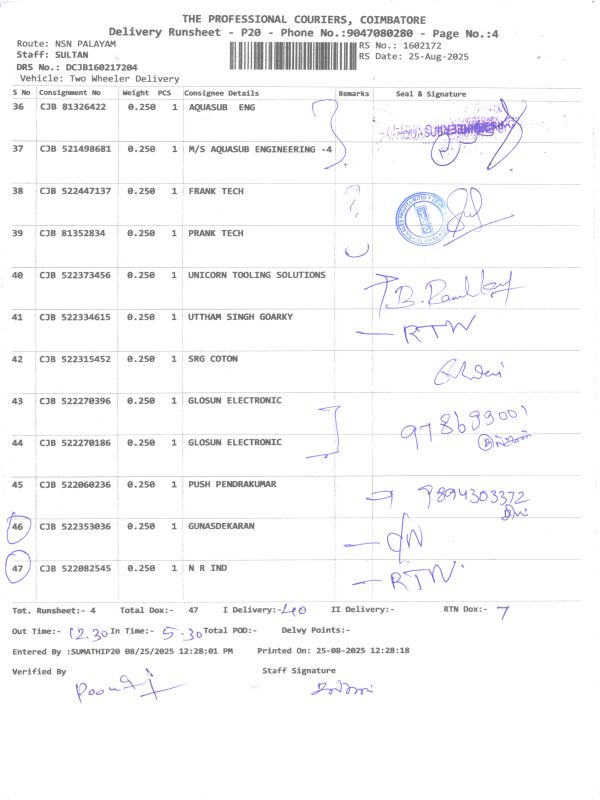 THE PROFESSIONAL COURIERS, COIMBATORE
Delivery Runsheet - P20 - Phone No.:9047080280 - Page No.:4
Route: NSN PALAYAM RS No.: 1602172
Staff: SULTAN RS Date: 25-Aug-2025
DRS No.: DCJB160217204
Vehicle: Two Wheeler Delivery
S No Consignment No Weight PCS Consignee Details Remarks Seal & Signature
36 CJB 81326422 0.250 1 AQUASUB ENG
37 CJB 521498681 0.250 1 M/S AQUASUB ENGINEERING -4
38 CJB 522447137 0.250 1 FRANK TECH
39 CJB 81352834 0.250 1 PRANK TECH
40 CJB 522373456 0.250 1 UNICORN TOOLING SOLUTIONS
41 CJB 522334615 0.250 1 UTTHAM SINGH GOARKY - RTW
42 CJB 522315452 0.250 1 SRG COTON
43 CJB 522270396 0.250 1 GLOSUN ELECTRONIC
44 CJB 522270186 0.250 1 GLOSUN ELECTRONIC
45 CJB 522060236 0.250 1 PUSH PENDRAKUMAR 9894303372
46 CJB 522353036 0.250 1 GUNASDEKARAN
47 CJB 522082545 0.250 1 N R IND - RTW
Tot. Runsheet:- 4 Total Dox:- 47 I Delivery:- 40 II Delivery:- RTN Dox:- 7
Out Time:- 12.30 In Time:- 5.30 Total POD:- Delvy Points:-
Entered By :SUMATHIP20 08/25/2025 12:28:01 PM Printed On: 25-08-2025 12:28:18
Verified By Staff Signature